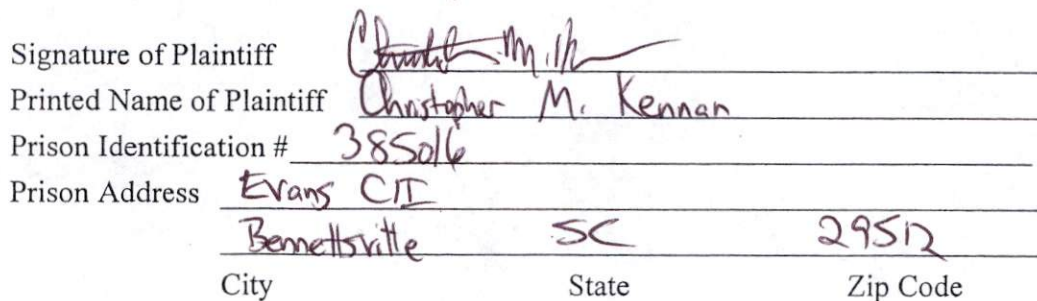 Signature of Plaintiff
Printed Name of Plaintiff Christopher M. Kennan
Prison Identification # 385016
Prison Address Evans CII
Bennettsville SC 29512
City State Zip Code